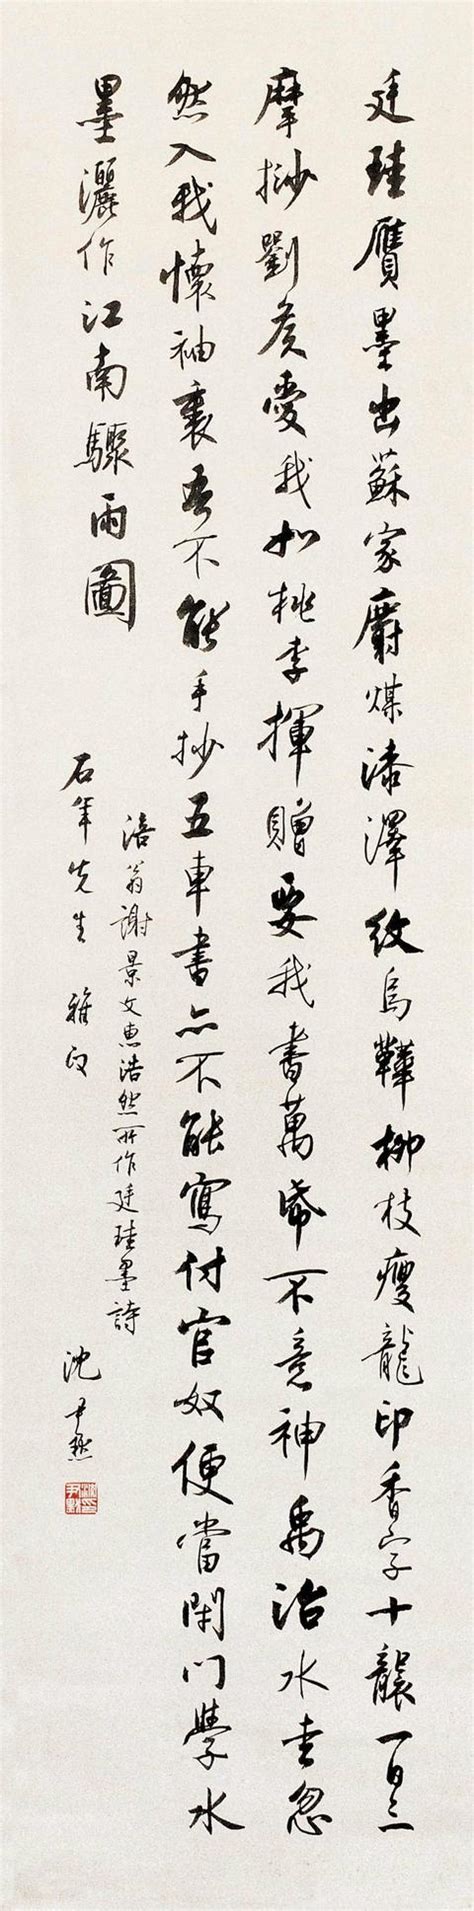 廷珪贗墨出蘇家麝煤漆澤紋烏鞾柳枝瘦龍印香字十襲一日三
摩挱劉侯愛我如桃李揮贈要我書萬帋不意神禹治水圭忽
然入我懷袖裏吾不能手抄五車書亦不能寫付官奴便當閉門學水
墨灑作江南驟雨圖
涪翁謝景文惠浩然所作廷珪墨詩
石年先生 雅正 沈尹默